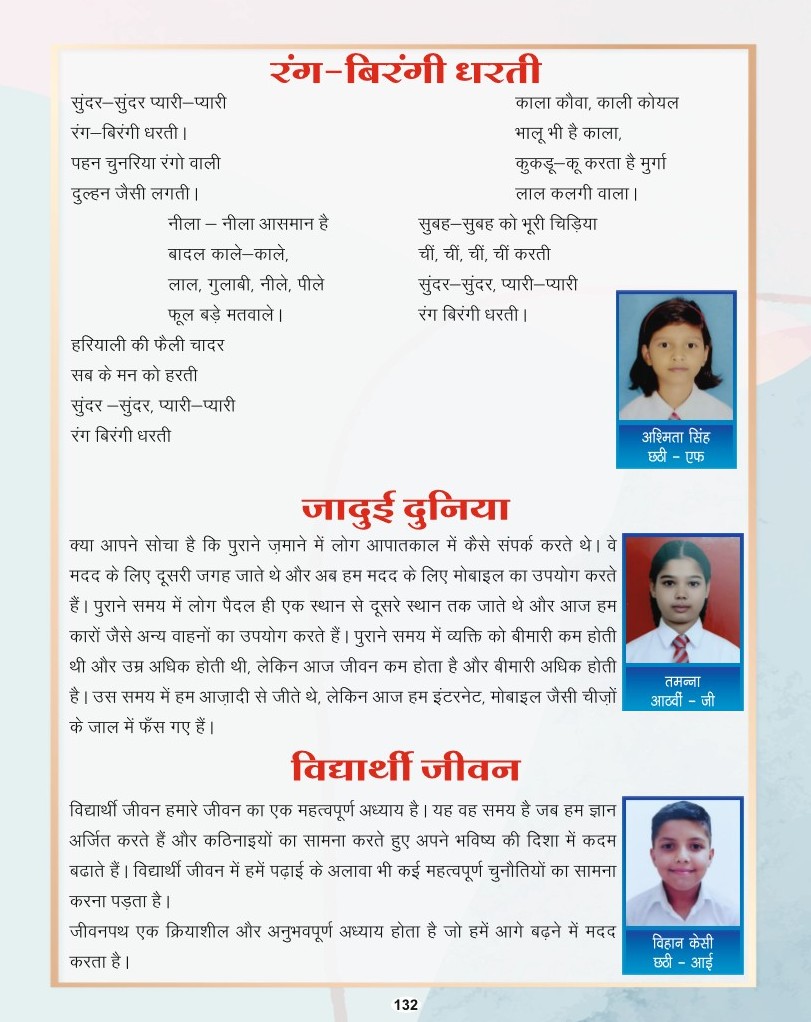 रंग-बिरंगी धरती
सुंदर–सुंदर प्यारी–प्यारी
रंग–बिरंगी धरती।
पहन चुनरिया रंगो वाली
दुल्हन जैसी लगती।
नीला – नीला आसमान है
बादल काले–काले,
लाल, गुलाबी, नीले, पीले
फूल बड़े मतवाले।
हरियाली की फैली चादर
सब के मन को हरती
सुंदर –सुंदर, प्यारी–प्यारी
रंग बिरंगी धरती
काला कौवा, काली कोयल
भालू भी है काला,
कुकडू–कू करता है मुर्गा
लाल कलगी वाला।
सुबह–सुबह को भूरी चिड़िया
चीं, चीं, चीं, चीं करती
सुंदर–सुंदर, प्यारी–प्यारी
रंग बिरंगी धरती।
अश्मिता सिंह
छठी - एफ
जादुई दुनिया
क्या आपने सोचा है कि पुराने ज़माने में लोग आपातकाल में कैसे संपर्क करते थे। वे
मदद के लिए दूसरी जगह जाते थे और अब हम मदद के लिए मोबाइल का उपयोग करते
हैं। पुराने समय में लोग पैदल ही एक स्थान से दूसरे स्थान तक जाते थे और आज हम
कारों जैसे अन्य वाहनों का उपयोग करते हैं। पुराने समय में व्यक्ति को बीमारी कम होती
थी और उम्र अधिक होती थी, लेकिन आज जीवन कम होता है और बीमारी अधिक होती
है। उस समय में हम आज़ादी से जीते थे, लेकिन आज हम इंटरनेट, मोबाइल जैसी चीज़ों
के जाल में फँस गए हैं।
तमन्ना
आठवीं - जी
विद्यार्थी जीवन
विद्यार्थी जीवन हमारे जीवन का एक महत्वपूर्ण अध्याय है। यह वह समय है जब हम ज्ञान
अर्जित करते हैं और कठिनाइयों का सामना करते हुए अपने भविष्य की दिशा में कदम
बढाते हैं। विद्यार्थी जीवन में हमें पढ़ाई के अलावा भी कई महत्वपूर्ण चुनौतियों का सामना
करना पड़ता है।
जीवनपथ एक क्रियाशील और अनुभवपूर्ण अध्याय होता है जो हमें आगे बढ़ने में मदद
करता है।
विहान केसी
छठी - आई
132